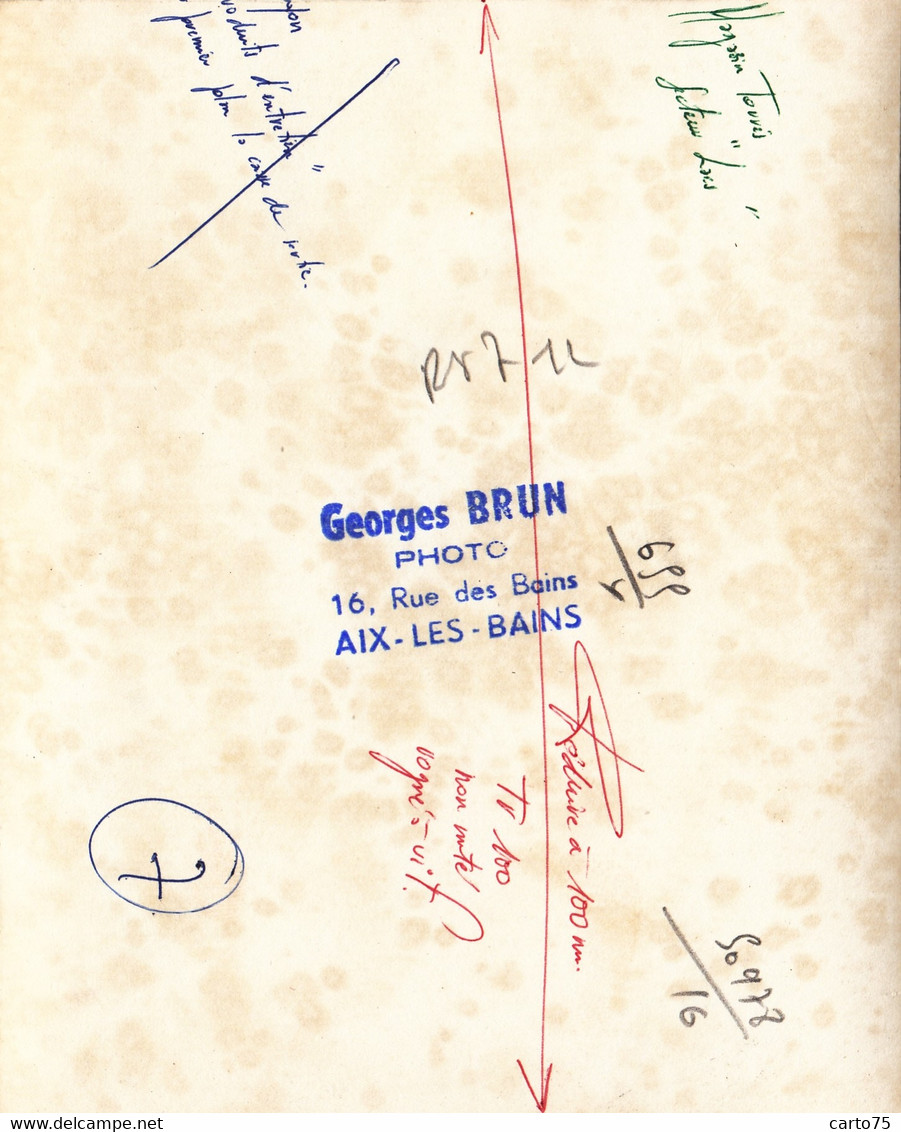 produits d'entretien"
premier plan la caisse de sortie.
Magasin Tourris "
Secteur Lacs "
R57 12
Georges BRUN
PHOTO
16, Rue des Bains
AIX-LES-BAINS
659
Réduire à 100 mm.
Tr 100
non monté
rogné à vif.
7
50978
16
www.delcampe.net
carto75